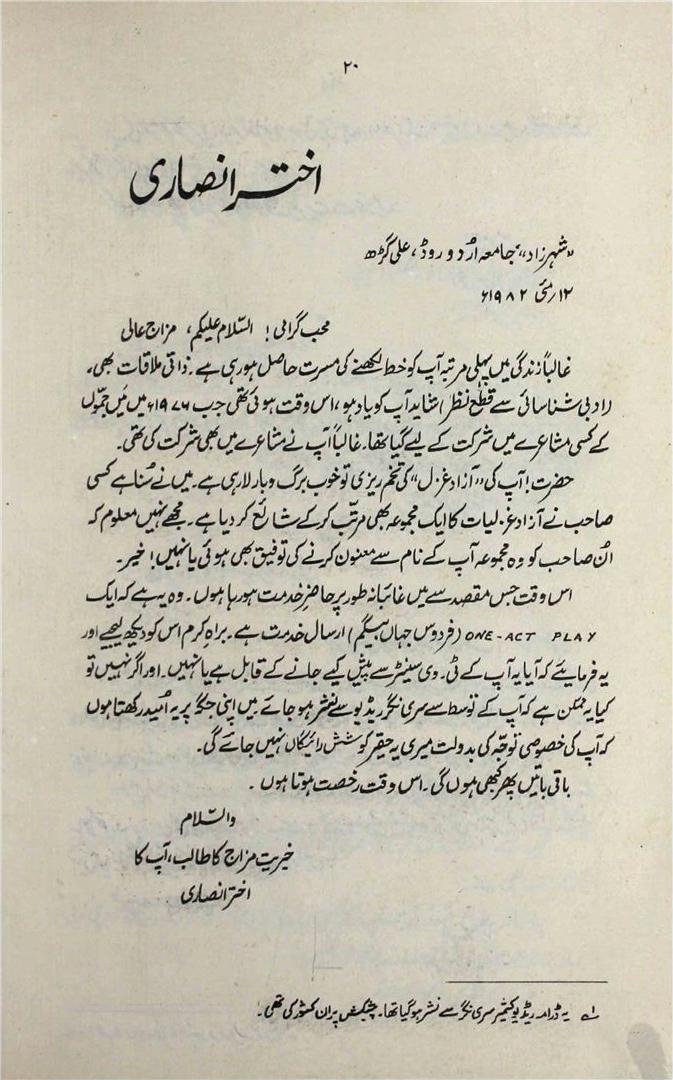 ۲۰
اختر انصاری
"شہرزاد"، جامعہ اُردو روڈ، علی گڑھ
۱۲ر مئی ۱۹۸۲ء
محب گرامی! السّلام علیکم، مزاج عالی
غالباً زندگی میں پہلی مرتبہ آپ کو خط لکھنے کی مسرت حاصل ہو رہی ہے۔ ذاتی ملاقات بھی،
(ادبی شناسائی سے قطع نظر) شاید آپ کو یاد ہو، اس وقت ہوئی تھی جب ۱۹۷۶ء میں مَیں جمّوں
کے کسی مشاعرے میں شرکت کے لیے گیا تھا۔ غالباً آپ نے مشاعرے میں بھی شرکت کی تھی۔
حضرت! آپ کی "آزاد غزل" کی تخم ریزی تو خوب برگ و بار لا رہی ہے۔ میں نے سُنا ہے کسی
صاحب نے آزاد غزلیات کا ایک مجموعہ بھی مرتّب کر کے شائع کر دیا ہے۔ مجھے نہیں معلوم کہ
اُن صاحب کو وہ مجموعہ آپ کے نام سے معنون کرنے کی توفیق بھی ہوئی یا نہیں! خیر۔
اس وقت جس مقصد سے میں غائبانہ طور پر حاضرِ خدمت ہو رہا ہوں۔ وہ یہ ہے کہ ایک
ONE-ACT PLAY (فردوس جہاں بیگم) ارسال خدمت ہے۔ براہِ کرم اس کو دیکھ لیجیے اور
یہ فرمایئے کہ آیا یہ آپ کے ٹی۔ وی سینٹر سے پیش کیے جانے کے قابل ہے یا نہیں۔ اور اگر نہیں تو
کیا یہ ممکن ہے کہ آپ کے توسط سے سری نگر ریڈیو سے نشر ہو جائے۔ میں اپنی جگہ پر یہ اُمید رکھتا ہوں
کہ آپ کی خصوصی توجّہ کی بدولت میری یہ حقیر کوشش رائیگاں نہیں جائے گی۔
باقی باتیں پھر کبھی ہوں گی۔ اس وقت رخصت ہوتا ہوں۔
والسّلام
خیریت مزاج کا طالب، آپ کا
اختر انصاری
۱؎ یہ ڈرامہ ریڈیو کشمیر سری نگر سے نشر ہو گیا تھا۔ پیشکش پران کشور کی تھی۔